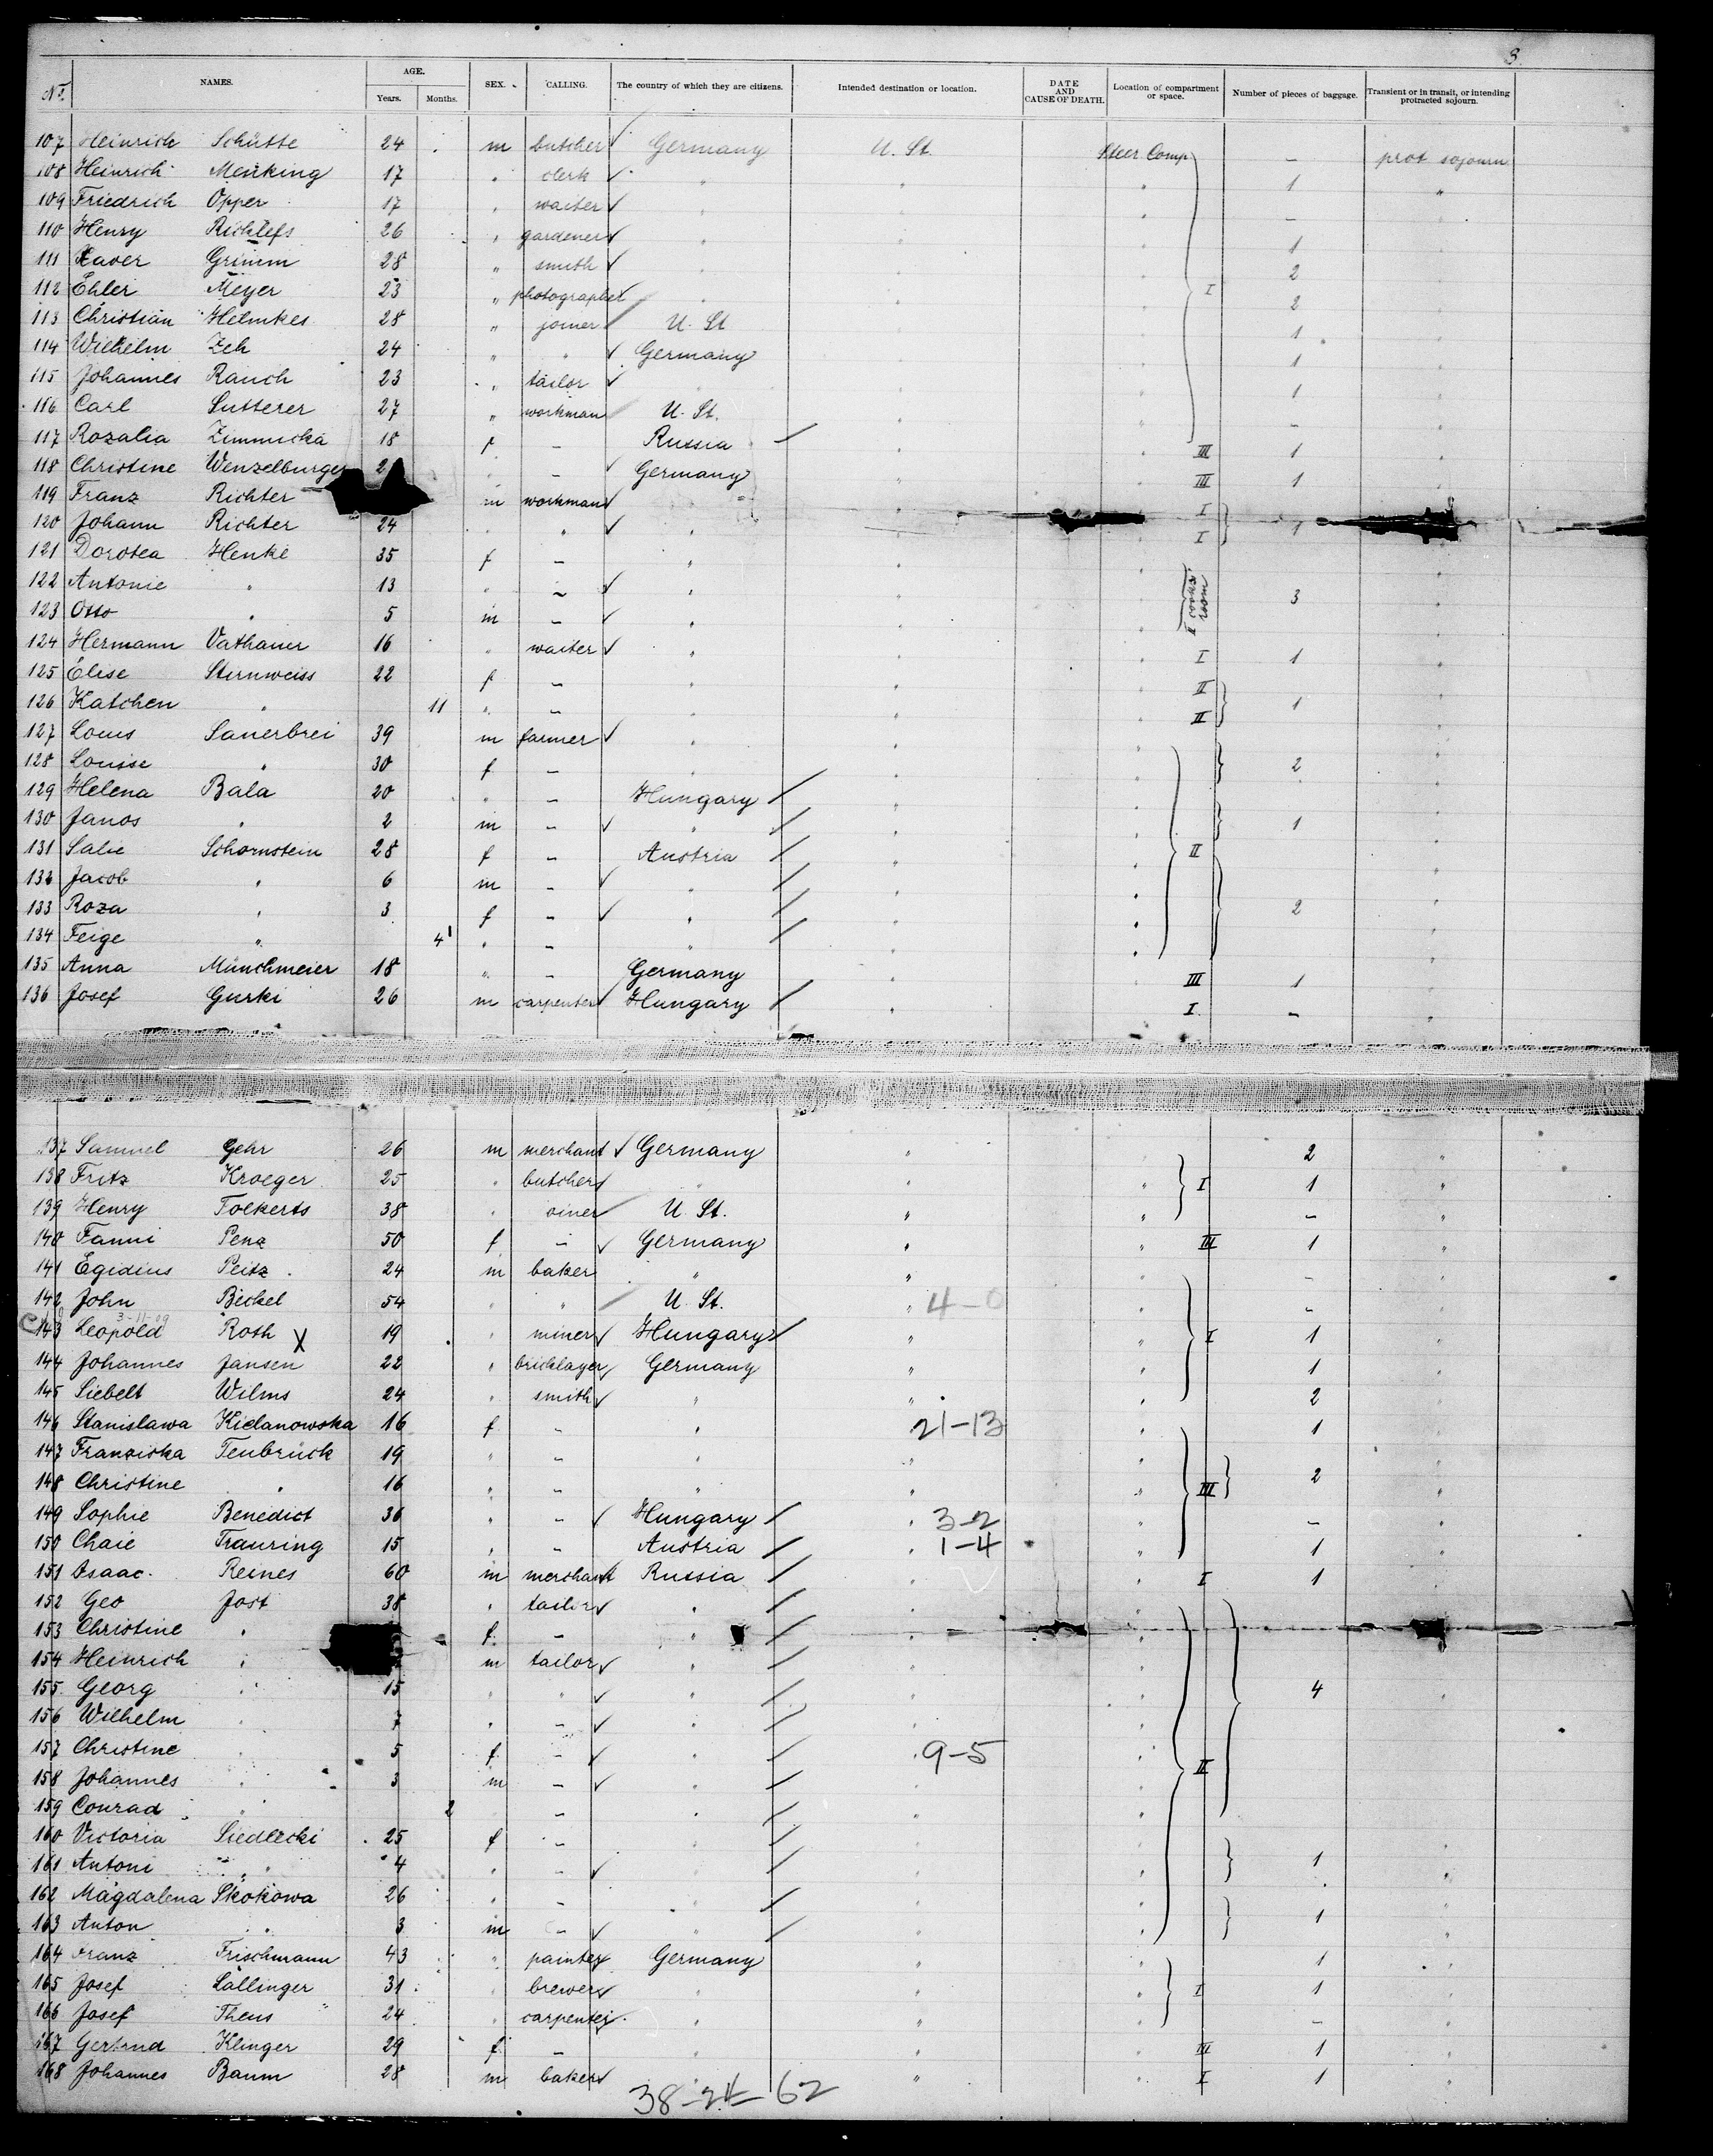 3
No. NAMES. AGE. Years. Months. SEX. CALLING. The country of which they are citizens. Intended destination or location. DATE AND CAUSE OF DEATH. Location of compartment or space. Number of pieces of baggage. Transient or in transit, or intending protracted sojourn.
107 Heinrich Schütte 24 m butcher Germany U. St. Steer Comp. – prot sojourn
108 Heinrich Menking 17 " clerk " " " 1 "
109 Friedrich Opper 17 " waiter " " " – "
110 Henry Richlefs 26 " gardener " " " 1 "
111 Xaver Grimm 28 " smith " " " 2 "
112 Ehler Meyer 23 " photographer " " " I 2 "
113 Christian Helmkes 28 " joiner U. St " " 1 "
114 Wilhelm Zeh 24 " " Germany " " 1 "
115 Johannes Rauch 23 " tailor " " " 1 "
116 Carl Sutterer 27 " workman U. St. " " – "
117 Rozalia Zimnicka 18 f – Russia " " III 1 "
118 Christine Wenzelburger 2 " – Germany " " III 1 "
119 Franz Richter m workman " " " I
120 Johann Richter 24 " " " " " I 1 "
121 Dorotea Henke 35 f – " " " "
122 Antonie " 13 " – " " " I cooks room 3 "
123 Otto " 5 m – " " " "
124 Hermann Vathauer 16 " waiter " " " I 1 "
125 Elise Sternweiss 22 f – " " " II "
126 Katchen " 11 " – " " " II 1 "
127 Louis Sauerbrei 39 m farmer " " " "
128 Louise " 30 f – " " " 2 "
129 Helena Bala 20 " – Hungary " " "
130 Janos " 2 m – " " " 1 "
131 Salie Schornstein 28 f – Austria " " II "
132 Jacob " 6 m – " " " "
133 Roza " 3 f – " " " 2 "
134 Feige " 4 " – " " " "
135 Anna Münchmeier 18 " – Germany " " III 1 "
136 Josef Gurki 26 m carpenter Hungary " " I – "
137 Samuel Gehr 26 m merchant Germany " " 2 "
138 Fritz Kroeger 25 " butcher " " " I 1 "
139 Henry Folkerts 38 " oiner U. St. " " – "
140 Fanni Penz 50 f – Germany " " III 1 "
141 Egidius Peitz 24 m baker " " " – "
142 John Bickel 54 " " U. St. " 4-0 " – "
3-11-09
143 Leopold Roth X 19 " miner Hungary " " I 1 "
144 Johannes Jansen 22 " bricklayer Germany " " 1 "
145 Siebelt Wilms 24 " smith " " " 2 "
146 Stanislawa Kielanowska 16 f – " 21-13 " 1 "
147 Franziska Tenbrück 19 " – " " " "
148 Christine " 16 " – " " " III 2 "
149 Sophie Benedict 36 " – Hungary " 3-2 " – "
150 Chaie Trauring 15 " – Austria " 1-4 " 1 "
151 Isaac Reines 60 m merchant Russia " " I 1 "
152 Geo Jost 38 " tailor " " "
153 Christine " f – " " "
154 Heinrich " m tailor " " "
155 Georg " 15 " " " " " 4 "
156 Wilhelm " 7 " – " " "
157 Christine " 5 f – " " 9-5 " II
158 Johannes " 3 m – " " "
159 Conrad " 2 – " " "
160 Victoria Siedlecki 25 f – " " " "
161 Antoni " 4 " – " " " 1 "
162 Magdalena Skokowa 26 " – " " " "
163 Anton " 3 m – " " " 1 "
164 Franz Frischmann 43 " painter Germany " " 1 "
165 Josef Lallinger 31 " brewer " " " I 1 "
166 Josef Theus 24 " carpenter " " " – "
167 Gertrud Klinger 29 f – " " " III 1 "
168 Johannes Baum 28 m baker " " " I 1 "
38-24-62